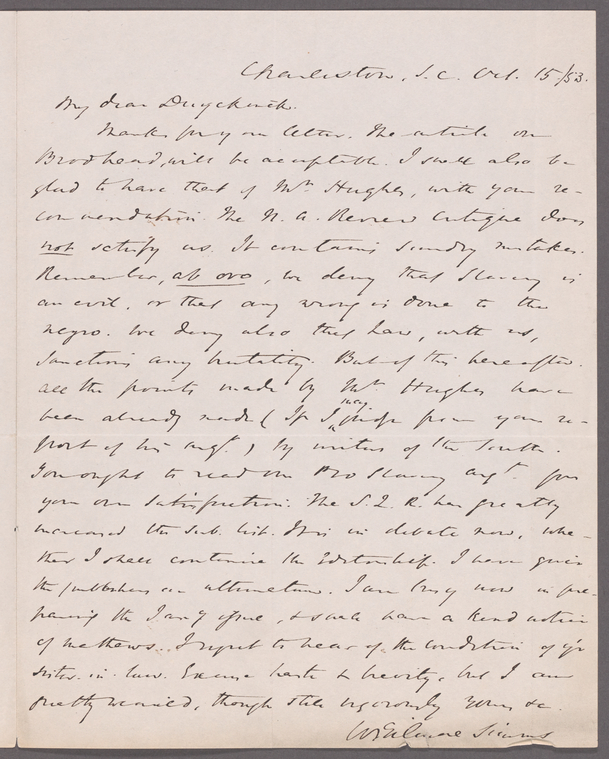 Charleston, S.C. Oct. 15/53.
My dear Duyckinck.
Thanks for your letter. The article on
Brodhead, will be acceptable. I shall also be
glad to have that of Mr. Hughes, with your re-
commendation. The N. A. Review critique does
not satisfy us. It contains sundry mistakes.
Remember, ab ovo, we deny that Slavery is
an evil, or that any wrong is done to the
negro. We deny also that Law, with us,
sanctions any brutality. But of this hereafter.
All the points made by Mr. Hughes have
been already made (If I may judge from your re-
port of his argt.) by writers of the South.
You ought to read our Pro Slavery argt. for
your own satisfaction. The S. Q. R. has greatly
increased its sub. list. It is in debate now, whe-
ther I shall continue the Editorship. I have given
the publishers an ultimatum. I am busy now in pre-
paring the Jany issue, & shall have a kind notice
of Mathews. I regret to hear of the condition of yr
sister in law. Excuse haste & brevity, but I am
pretty wearied, though still vigorously Yours &c.
W Gilmore Simms